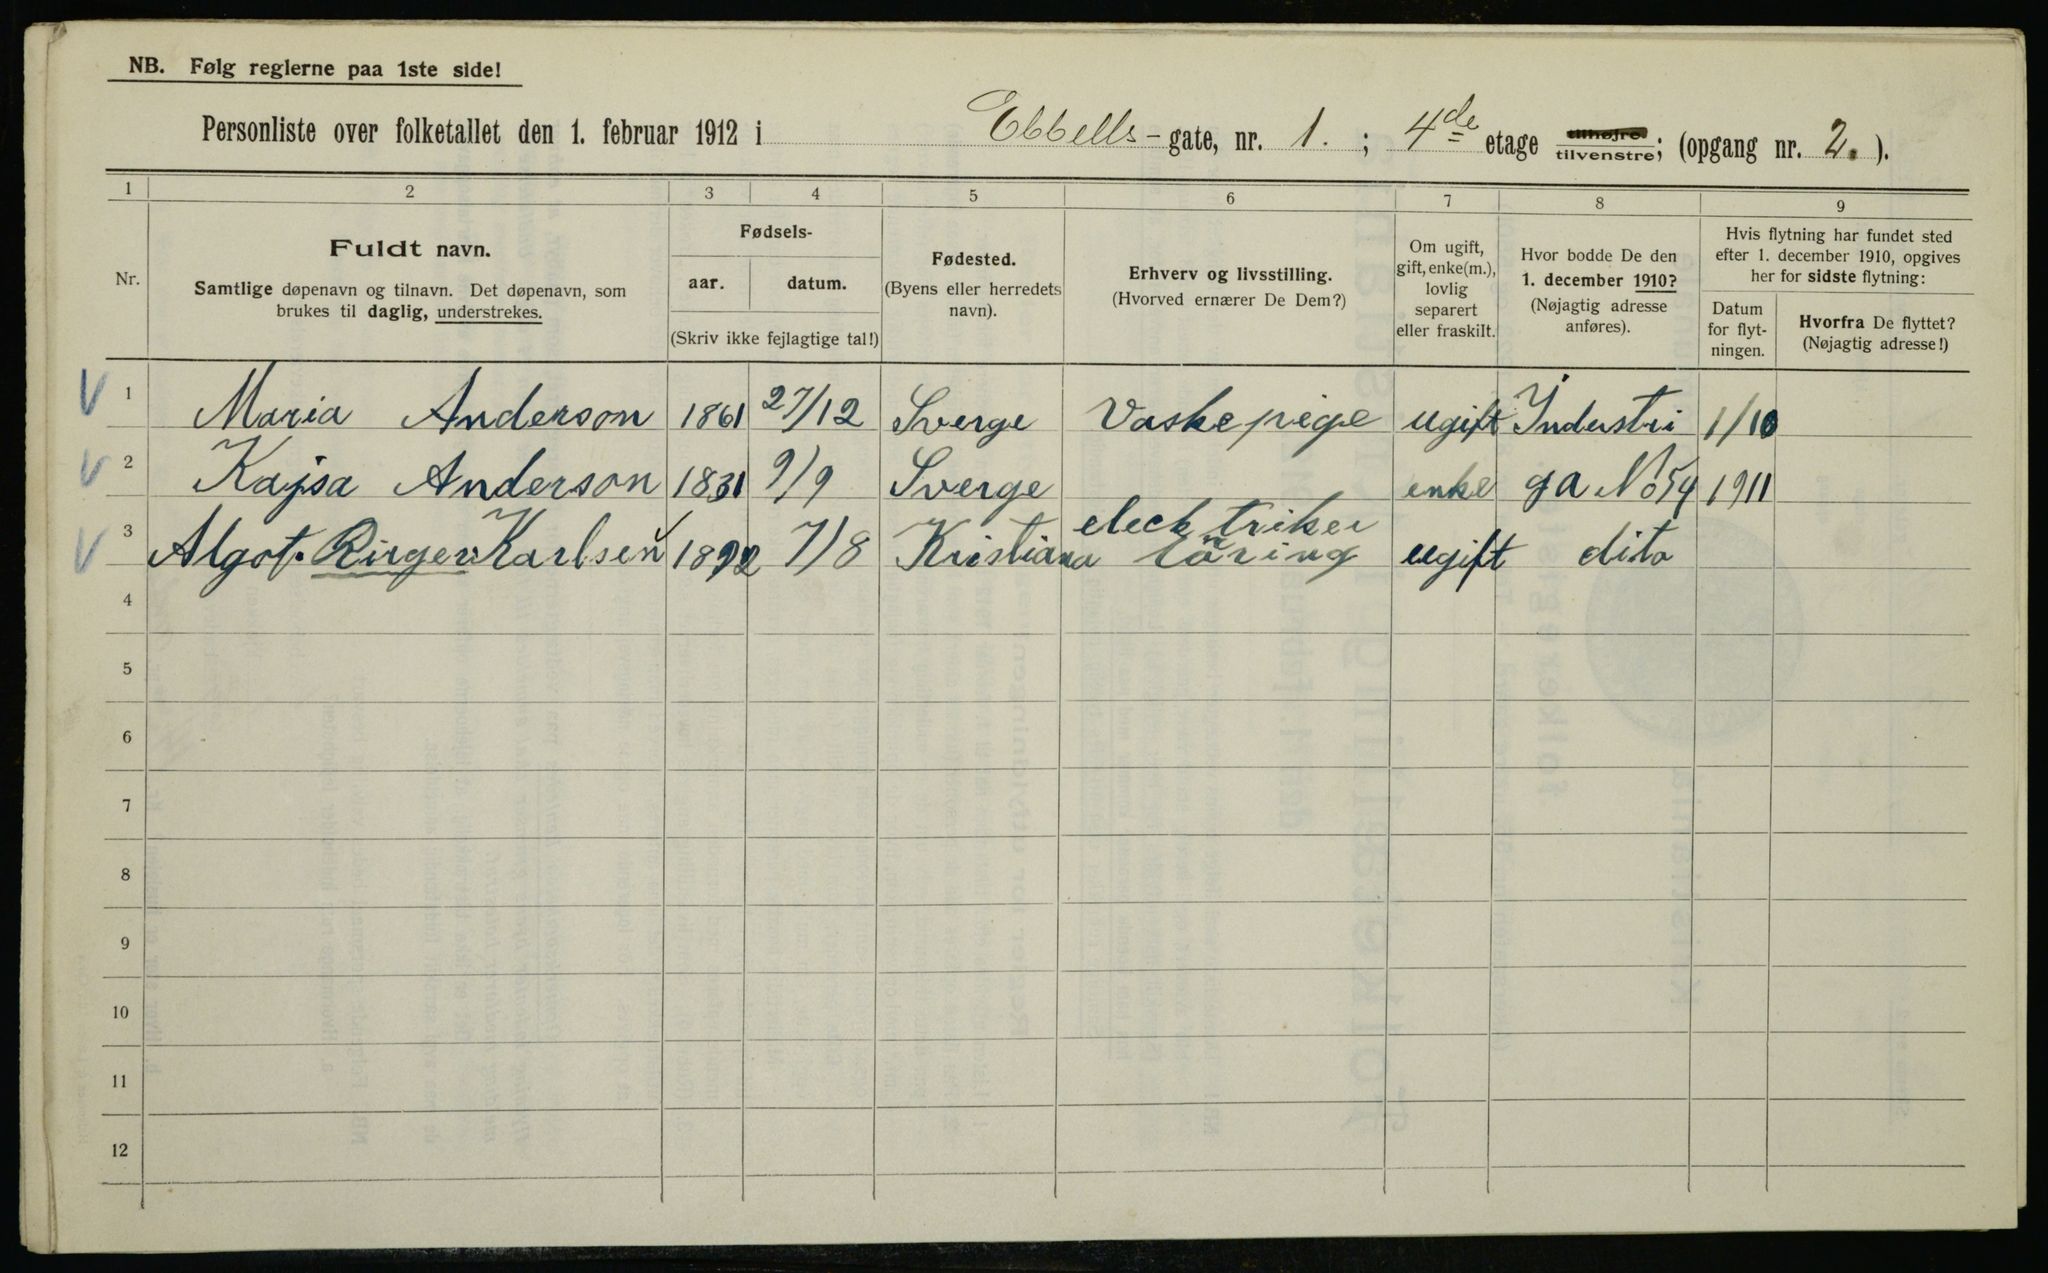 NB. Følg reglerne paa 1ste side!
Personliste over folketallet den 1. februar 1912 i Ebbells-gate, nr. 1. ; 4de etage tilhøjre tilvenstre; (opgang nr. 2. ).
1 2 3 4 5 6 7 8 9
Nr.
Fuldt navn.
Samtlige døpenavn og tilnavn. Det døpenavn, som
brukes til daglig, understrekes.
Fødsels-
aar. datum.
(Skriv ikke fejlagtige tal!)
Fødested.
(Byens eller herredets
navn).
Erhverv og livsstilling.
(Hvorved ernærer De Dem?)
Om ugift,
gift, enke(m.),
lovlig
separert
eller fraskilt.
Hvor bodde De den
1. december 1910?
(Nøjagtig adresse
anføres).
Hvis flytning har fundet sted
efter 1. december 1910, opgives
her for sidste flytning:
Datum
for flyt-
ningen.
Hvorfra De flyttet?
(Nøjagtig adresse!)
V 1 Maria Anderson 1861 27/12 Sverge Vaskepige ugift Industri 1/10
V 2 Kajsa Anderson 1831 9/9 Sverge enke ga No 54 1911
V 3 Algot. Karlsen 1892 7/8 Kristiana elecktriker ugift dito
4
5
6
7
8
9
10
11
12